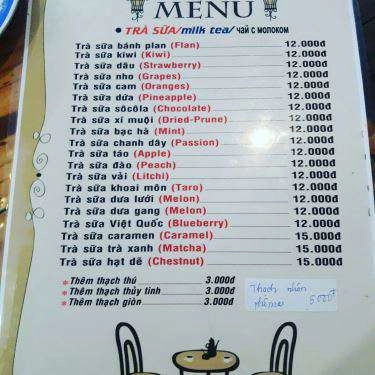 MENU
• TRÀ SỮA/milk tea/ ЧАЙ С МОЛОКОМ
Trà sữa bánh plan (Flan) 12.000đ
Trà sữa kiwi (Kiwi) 12.000đ
Trà sữa dâu (Strawberry) 12.000đ
Trà sữa nho (Grapes) 12.000đ
Trà sữa cam (Oranges) 12.000đ
Trà sữa dứa (Pineapple) 12.000đ
Trà sữa sôcôla (Chocolate) 12.000đ
Trà sữa xí muội (Dried-Prune) 12.000đ
Trà sữa bạc hà (Mint) 12.000đ
Trà sữa chanh dây (Passion) 12.000đ
Trà sữa táo (Apple) 12.000đ
Trà sữa đào (Peach) 12.000đ
Trà sữa vải (Litchi) 12.000đ
Trà sữa khoai môn (Taro) 12.000đ
Trà sữa dưa lưới (Melon) 12.000đ
Trà sữa dưa gang (Melon) 12.000đ
Trà sữa Việt Quốc (Blueberry) 12.000đ
Trà sữa caramen (Caramel) 15.000đ
Trà sữa trà xanh (Matcha) 15.000đ
Trà sữa hạt dẻ (Chestnut) 15.000đ
* Thêm thạch thú 3.000đ
* Thêm thạch thủy tinh 3.000đ
* Thêm thạch giòn 3.000đ
Thạch nhân
5.000đ